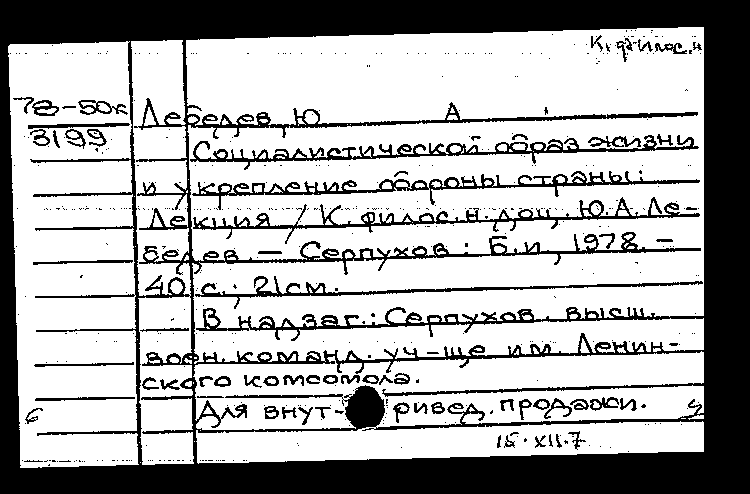 К. филос. н
78-50к
3199
Лебедев, Ю А
Социалистической образ жизни
и укрепление обороны страны:
Лекция / К. филос. н. доц. Ю.А. Ле-
бедев. — Серпухов: Б.и., 1978. —
40 с.; 21см.
В надзаг.: Серпухов. высш.
воен. команд. уч-ще им. Ленин-
ского комсомола.
Для внут- ривед. продажи.
6
15.XII.7